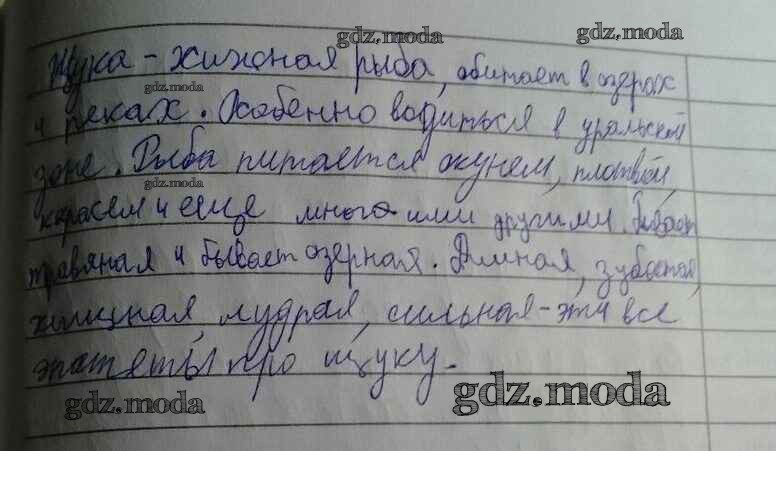 gdz.moda
gdz.moda
Щука - хижная рыба, обитает в озерах
gdz.moda
и реках. Особенно водиться в уральской
зоне. Рыба питается окунем, плотвой,
gdz.moda
карасем и еще многоими другими. Бывает
травяная и бывает озерная. Длиная, зубастая,
хищная, мудрая, сильная - эти все
эпитеты про щуку.
gdz.moda
gdz.moda